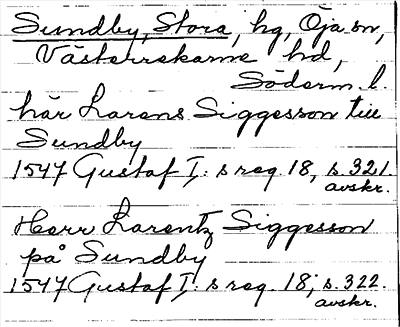 Sundby, Stora, hg, Öja sn,
Västerrekarne hd,
Söderm. l.
här Larens Siggesson till
Sundby
1547 Gustaf I: s reg. 18, s. 321.
avskr.
Herr Larentz Siggesson
på Sundby
1547 Gustaf I: s reg. 18; s. 322.
avskr.